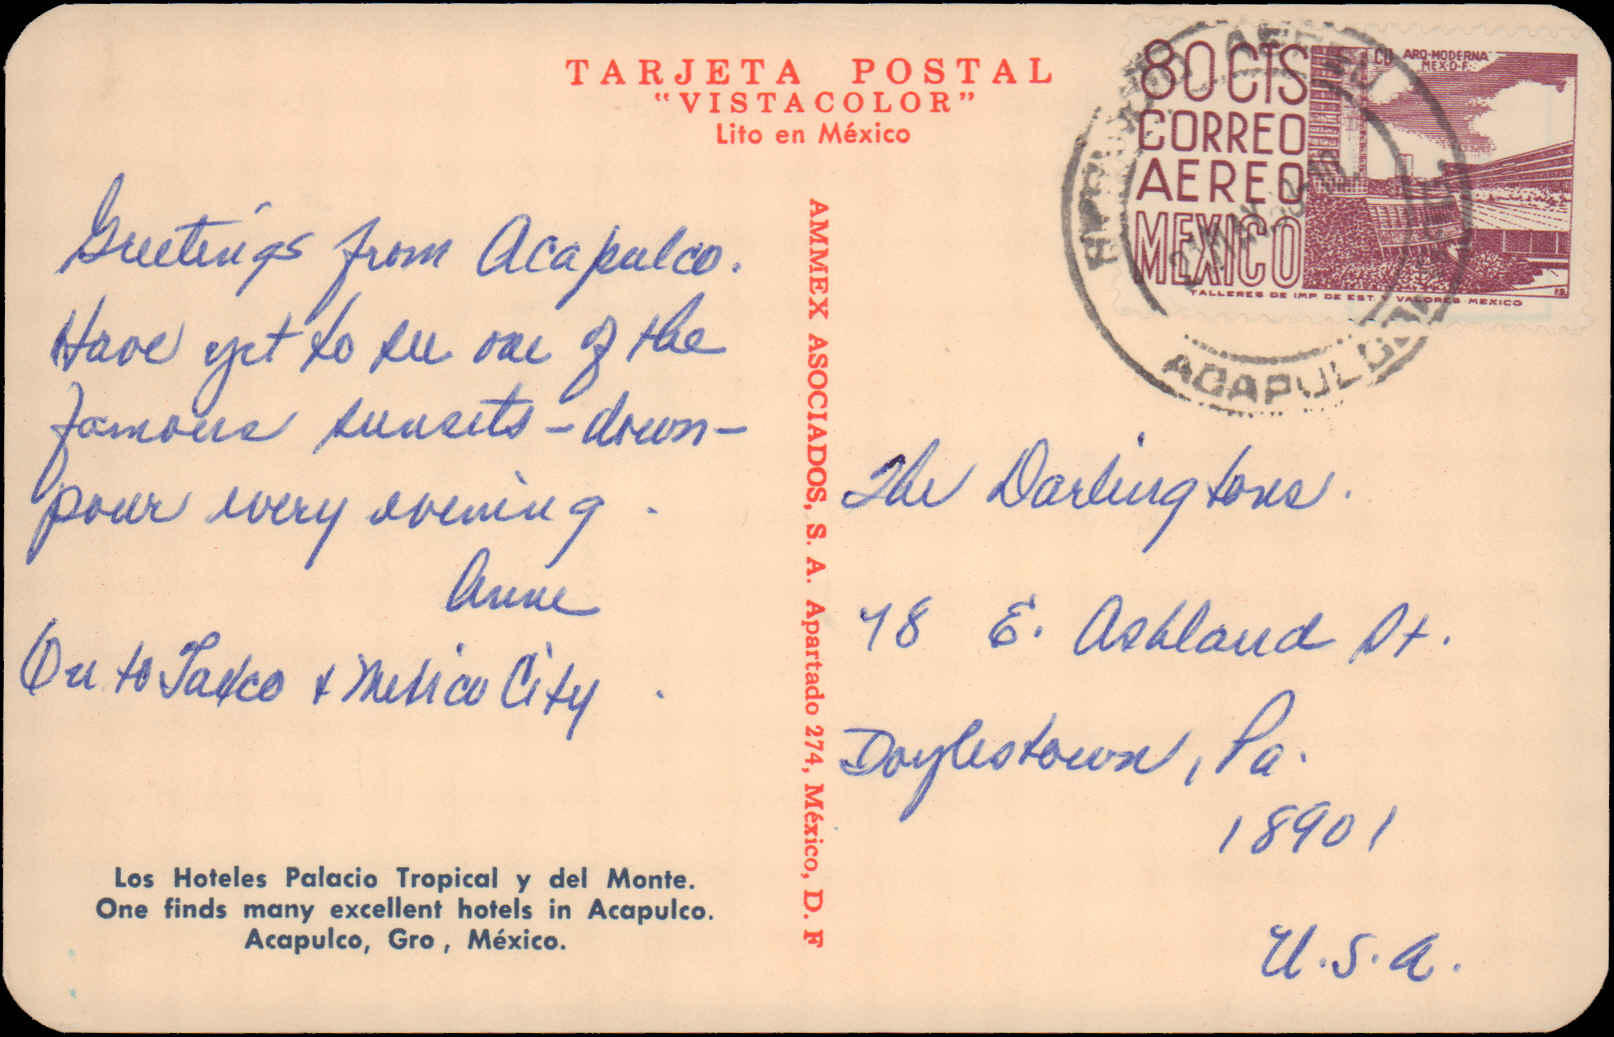 TARJETA POSTAL
"VISTACOLOR"
Lito en México
Greetings from Acapulco.
Have yet to see one of the
famous sunsets - down-
pour every evening.
Anne
On to Taxco & Mexico City.
Los Hoteles Palacio Tropical y del Monte.
One finds many excellent hotels in Acapulco.
Acapulco, Gro, México.
AMMEX ASOCIADOS, S. A. Apartado 274, México, D. F
80 CTS
CORREO
AEREO
MEXICO
CU ARQ-MODERNA
MEX-D-F-
TALLERES DE IMP. DE EST. Y VALORES MEXICO
AEREO
ACAPULCO
The Darlingtons.
78 E. Ashland St.
Doylestown, Pa.
18901
U.S.A.